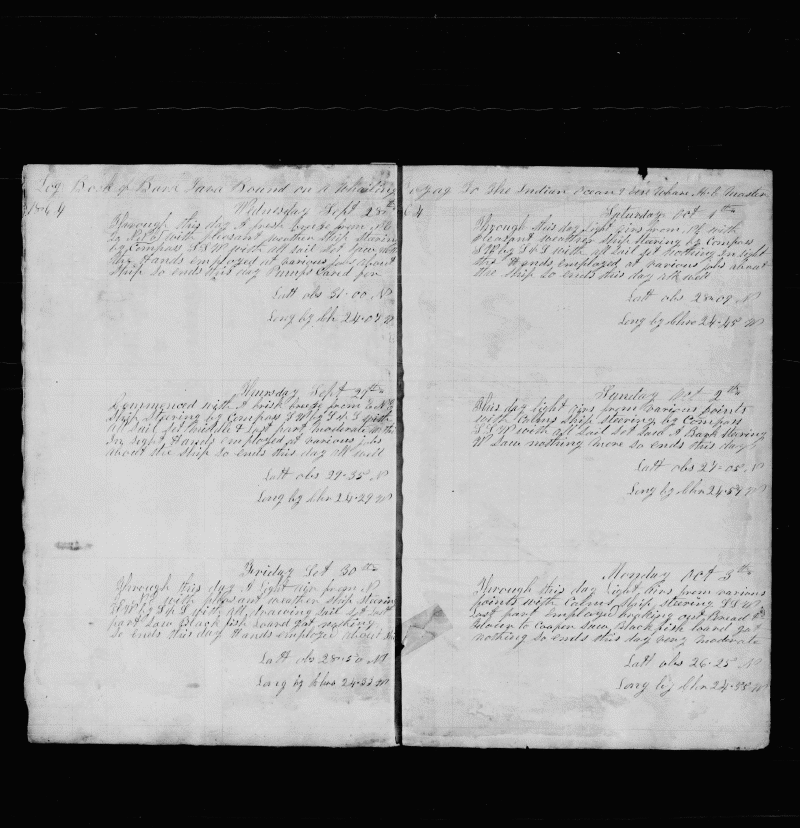 Log Book of Bark Java Bound on A Whaling Voyag To The Indian Ocean & Ver Where H. E. Master
1864
Wednesday Sept 28th
Through this day A fresh breeze from NE
to with pleasant weather Ship Steering
by Compass S.S.W with all sail set Saw
the Hands employed at various jobs about
Ship so ends this day Pumps Cared for
Latt obs 31-00 N
Long by Chr 24-07 W
Thursday Sept 29th
Commenced with A brisk breeze from
Ship Steering by Compass SW by S & S with
all Sail set Middle & Last part moderate
In sight Hands employed at various jobs
about the Ship so ends this day all well
Latt obs 29-35 N
Long by Chr 24-29 W
Friday Set 30th
Through this day A Light air from N
with pleasant weather Ship Steering
SW by S & S with all drawing Sail set Last
part Saw Black fish Loard got nothing
so ends this day Hands employed about
Latt obs 28-50 N
Long by Chro 24-33 W
64
Saturday Oct 1th
Through this day light airs from N with
pleasant weather Ship Steering by Compass
SW by S & S with all Sail set nothing in sight
the Hands employed at various jobs about
the Ship so ends this day all well
Latt obs 28-09 N
Long by Chro 24-45 W
Sunday Oct 2th
This day light airs from various points
with Calms Ship Steering by Compass
S.S.W with all Sail set Saw A Bark Steering
W Saw nothing more so ends this day
Latt obs 27-05 N
Long by Chr 24-54 W
Monday Oct 3th
Through this day Light Airs from various
points with Calms Ship Steering S.S.W
Last part employed breaking out Bread &
Saw Black fish loard got
nothing so ends this day very moderate
Latt obs 26-25 N
Long by Chr 24-55 W